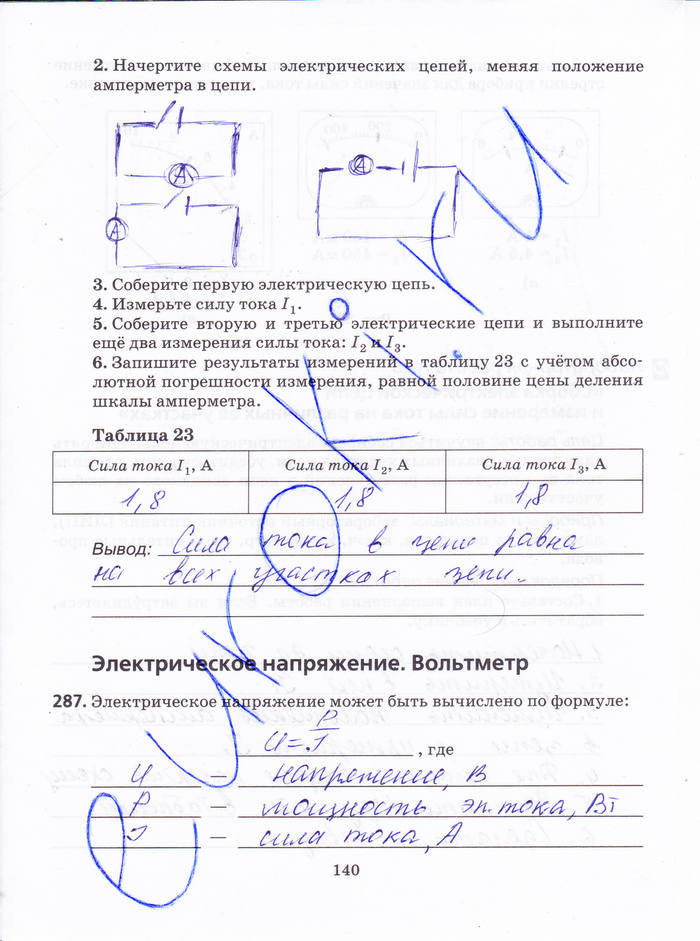 2. Начертите схемы электрических цепей, меняя положение
амперметра в цепи.
А
А
А
3. Соберите первую электрическую цепь.
4. Измерьте силу тока I₁.
5. Соберите вторую и третью электрические цепи и выполните
ещё два измерения силы тока: I₂ и I₃.
6. Запишите результаты измерений в таблицу 23 с учётом абсо-
лютной погрешности измерения, равной половине цены деления
шкалы амперметра.
Таблица 23
Сила тока I₁, А Сила тока I₂, А Сила тока I₃, А
1,8 1,8 1,8
Вывод: Сила тока в цепи равна
на всех участках цепи.
Электрическое напряжение. Вольтметр
287. Электрическое напряжение может быть вычислено по формуле:
U = P/I, где
U — напряжение, В
P — мощность эл. тока, Вт
I — сила тока, А
140